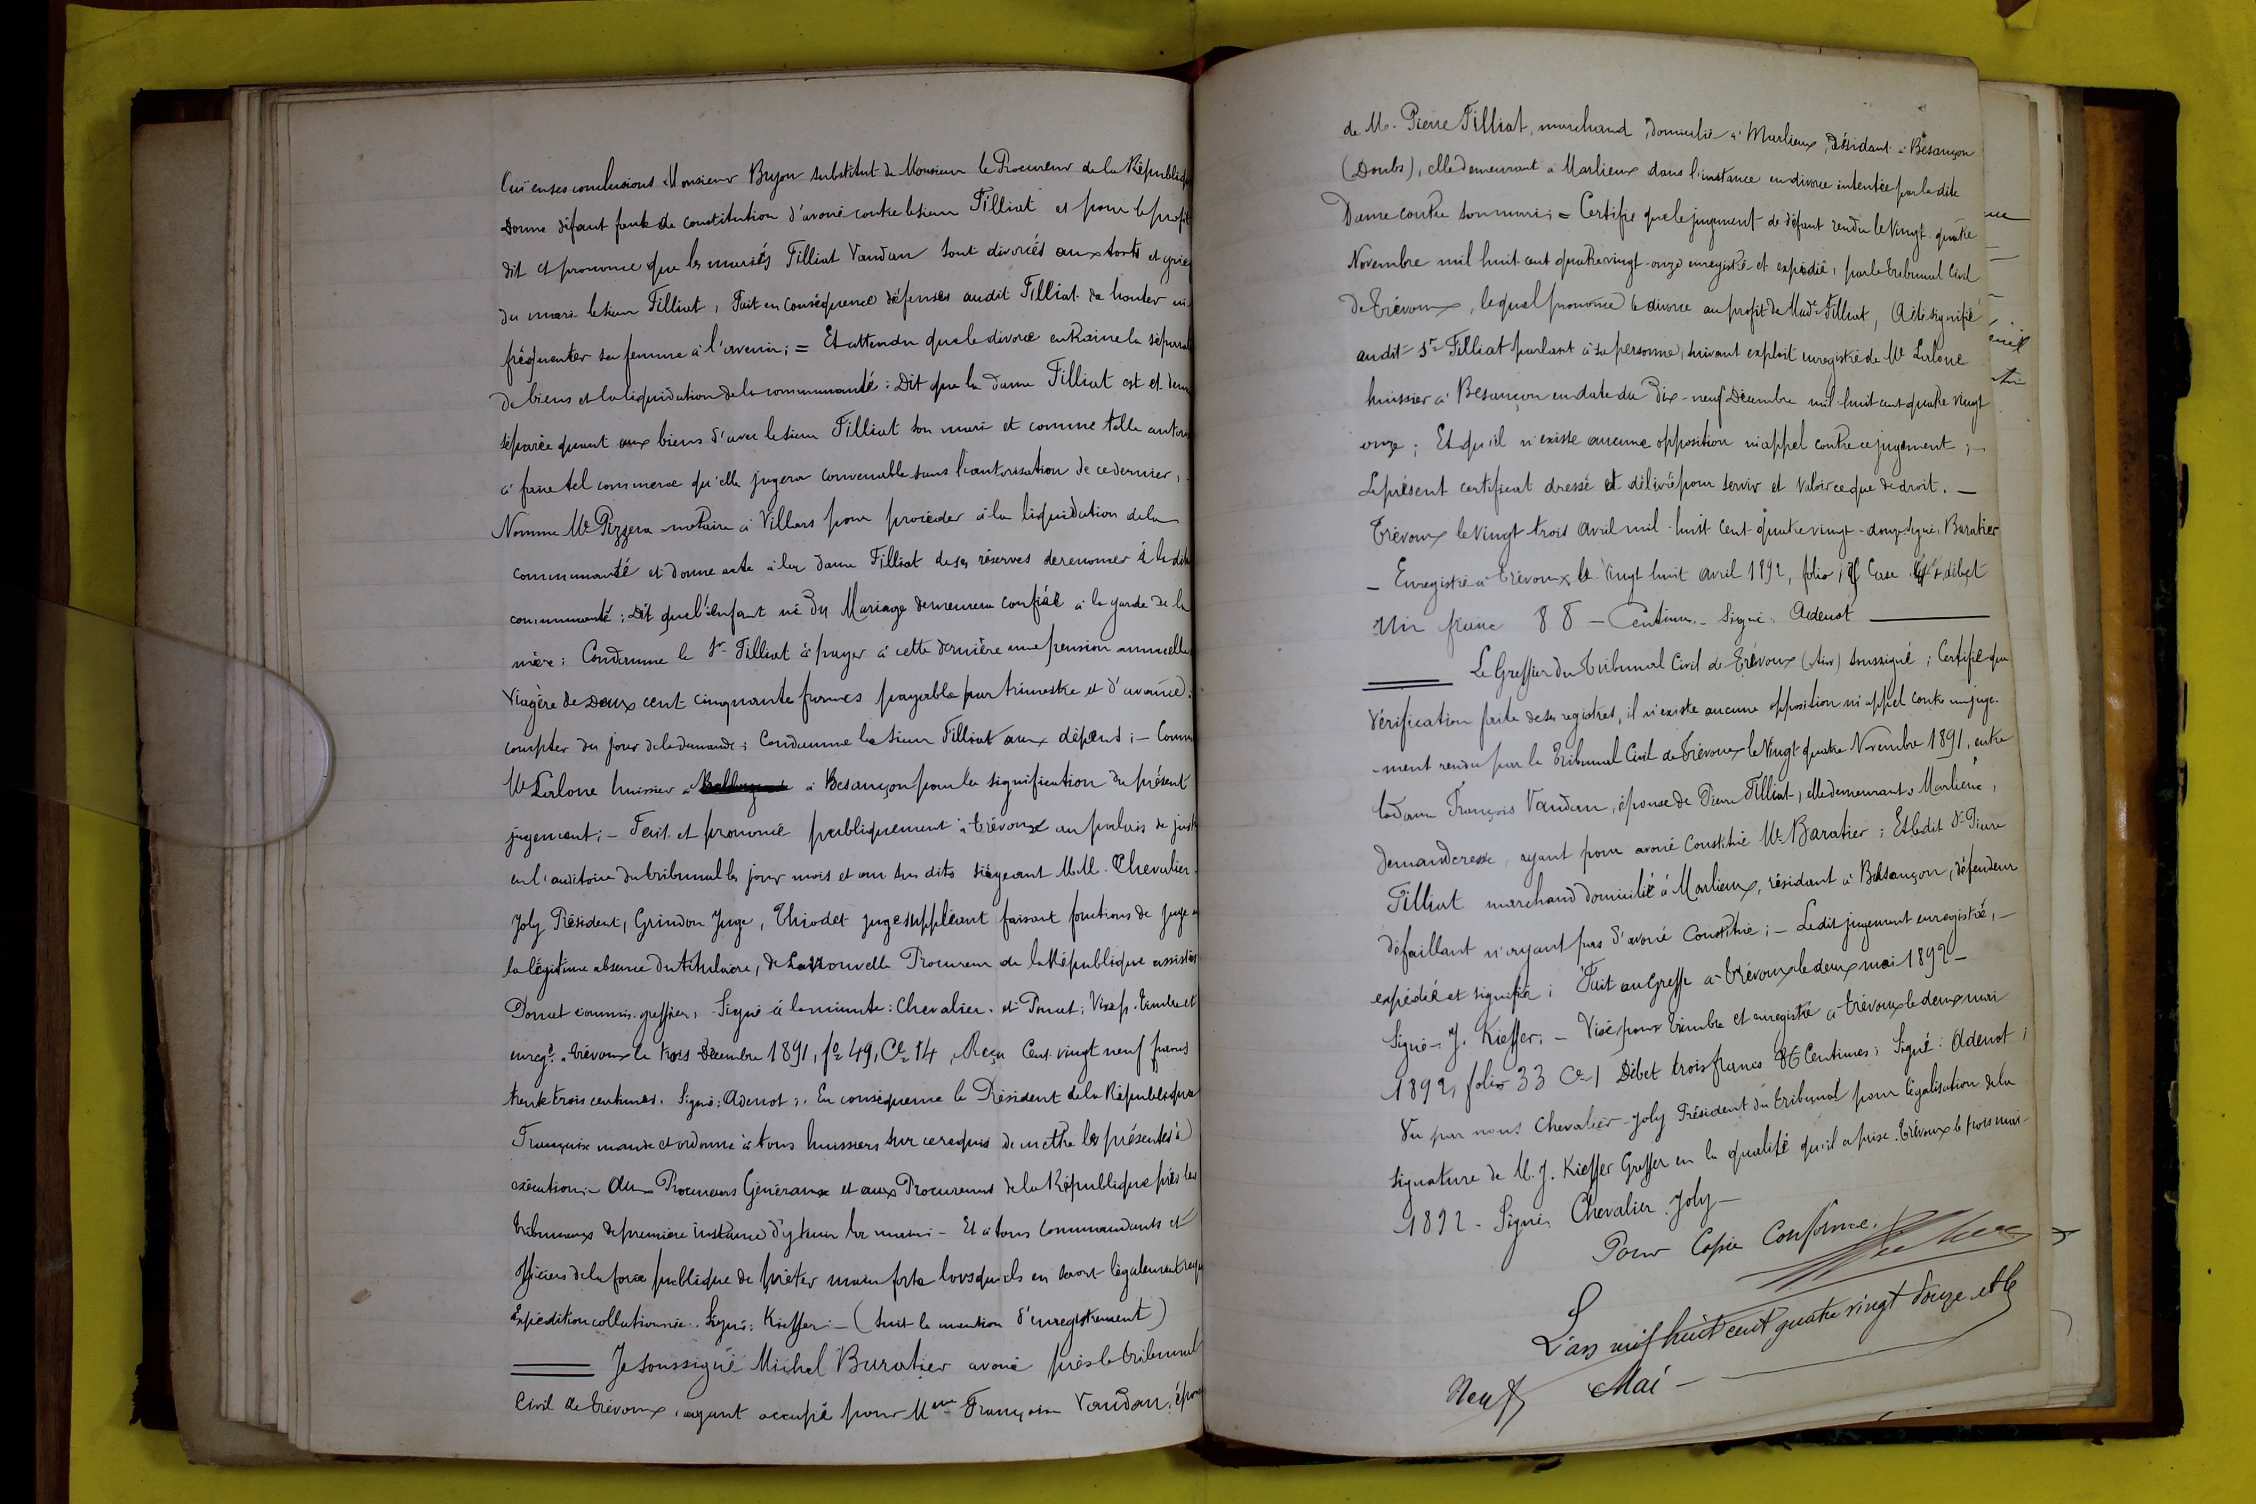 Ouï en ses conclusions Monsieur Bryon substitut de Monsieur le Procureur de la République
Donne défaut faute de constitution d'avoué contre le sieur Filliat et pour le profit
dit et prononce que les mariés Filliat Vaudan sont divorcés aux torts et griefs
du mari le sieur Filliat, Fait en conséquence défenses audit Filliat de hanter ni
fréquenter sa femme à l'avenir ; = Et attendu que le divorce entraine la séparat
de biens et la liquidation de la communauté : Dit que la dame Filliat est et dem
séparée quant aux biens d'avec le sieur Filliat son mari et comme telle autor
à faire tel commerce qu'elle jugera convenable sans l'autorisation de ce dernier ;
Nomme Me Pizzera notaire à Villars pour procéder à la liquidation de la
communauté et donne acte à la dame Filliat de ses réserves de renoncer à la dite
communauté ; Dit que l'enfant né du Mariage demeurera confiée à la garde de la
mère ; Condamne le Sr Filliat à payer à cette dernière une pension annuelle
viagère de deux cent cinquante francs payable par trimestre et d'avance
compter du jour de la demande ; Condamne le sieur Filliat aux dépens ; — Comm
Me huissier à à Besançon pour la signification du présent
jugement ; — Fait et prononcé publiquement à Trévoux au palais de just
en l'auditoire du tribunal les jour mois et an sus dits siégeant M.M. Chevalier
Joly Président, Grindon Juge, Thiodet juge suppléant faisant fonctions de juge
la légitime absence du titulaire, de Procureur de la République assistés
commis-greffier ; Signé à la minute : Chevalier. et ; Visé p. timbre et
enregé à Trévoux le trois Décembre 1891, fo 49, Ce 14, Reçu Cent vingt neuf francs
trente trois centimes. Signé : Adenot ; . En conséquence le Président de la République
Française mande et ordonne à tous huissiers sur ce requis de mettre les présentes à
exécution ; — Aux Procureurs Généraux et aux Procureurs de la République près les
tribunaux de première instance d'y tenir la main ; — Et à tous Commandants et
Officiers de la force publique de prêter main forte lorsqu'ils en seront légalement requ
Expédition collationnée. Signé : Kieffer ; — (Suit la mention d'enregistrement)
Je soussigné Michel Baratier avoué près le tribunal
Civil de Trévoux, ayant occupé pour Mme Françoise Vaudan, épouse
de M. Pierre Filliat, marchand, domicilié à Marlieux, résidant à Besançon
(Doubs), elle demeurant à Marlieux dans l'instance en divorce intentée par la dite
Dame contre son mari ; = Certifie que le jugement de défaut rendu le vingt-quatre
Novembre mil huit cent quatre vingt-onze enregistré et expédié, par le tribunal Civil
de Trévoux, lequel prononce le divorce au profit de Made Filliat, a été signifié
audit Sr Filliat parlant à sa personne, suivant exploit enregistré de Me
huissier à Besançon en date du Dix-neuf Décembre mil huit cent quatre vingt
onze ; Et qu'il n'existe aucune opposition ni appel contre ce jugement ;
Le présent certificat dressé et délivré pour servir et valoir ce que de droit. —
Trévoux le vingt trois avril mil-huit cent quatre vingt-douze signé, Baratier
— Enregistré à Trévoux le vingt huit avril 1892, folio Case débet
Un franc 88 — Centimes — Signé : Adenot
Le Greffier du tribunal Civil de Trévoux (Ain) soussigné ; Certifie que
vérification faite de ses registres, il n'existe aucune opposition ni appel contre un juge-
-ment rendu par le Tribunal Civil de Trévoux le vingt quatre Novembre 1891, entre
la dame François Vaudan, épouse de Pierre Filliat, elle demeurant à Marlieux,
demanderesse, ayant pour avoué Constitué Me Baratier ; Et ledit Sr Pierre
Filliat marchand domicilié à Marlieux, résidant à Besançon, défendeur
défaillant n'ayant pas d'avoué Constitué ; — Ledit jugement enregistré, —
expédié et signifié ; Fait au Greffe à Trévoux le deux mai 1892 —
Signé — J. Kieffer ; — Visé pour timbre et enregistré à Trévoux le deux mai
1892, folio 33 Ce 1 Débet trois francs Centimes ; Signé : Adenot ;
Vu par nous Chevalier-Joly Président du tribunal pour légalisation de la
signature de M. J. Kieffer Greffier en la qualité qu'il a prise. Trévoux le trois mai
1892 - Signé, Chevalier Joly —
Pour Copie Conforme.
L'an mil huit cent quatre vingt douze et le
Neuf Mai —